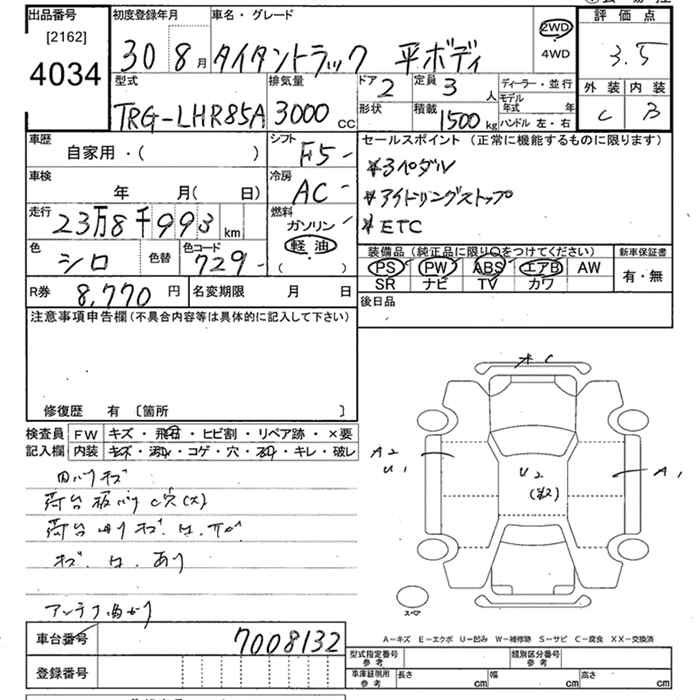 出品番号
[2162]
4034
初度登録年月
30 8月
車名・グレード
タイタントラック 平ボディ
2WD
4WD
評価点
3.5
外装 内装
C B
型式
TRG-LHR85A
排気量
3000 cc
ドア 2
形状
定員 3人
積載 1500kg
ディーラー・並行
モデル年式 年
ハンドル 左・右
車歴
自家用・( )
シフト
F5
セールスポイント (正常に機能するものに限ります)
*3ペダル
*アイドリングストップ
*ETC
車検
年 月( 日)
冷房
AC
走行
23万8千993km
燃料
ガソリン
軽油
( )
色
シロ
色替
色コード
729
装備品 (純正品に限り○をつけてください)
PS PW ABS エアB AW
SR ナビ TV カワ
新車保証書
有・無
R券 8,770円
名変期限 月 日
後日品
注意事項申告欄(不具合内容等は具体的に記入して下さい)
修復歴 有 〔箇所 〕
検査員
記入欄
FW キズ・飛石・ヒビ割・リペア跡・×要
内装 キズ・汚れ・コゲ・穴・スレ・キレ・破レ
A2
U1
U2
A1
スペア
A-キズ E-エクボ U-凹み W-補修跡 S-サビ C-腐食 XX-交換済
車台番号 7008132
登録番号
型式指定番号
参考
類別区分番号
参考
車庫証明用
参考
長さ cm 幅 cm 高さ cm